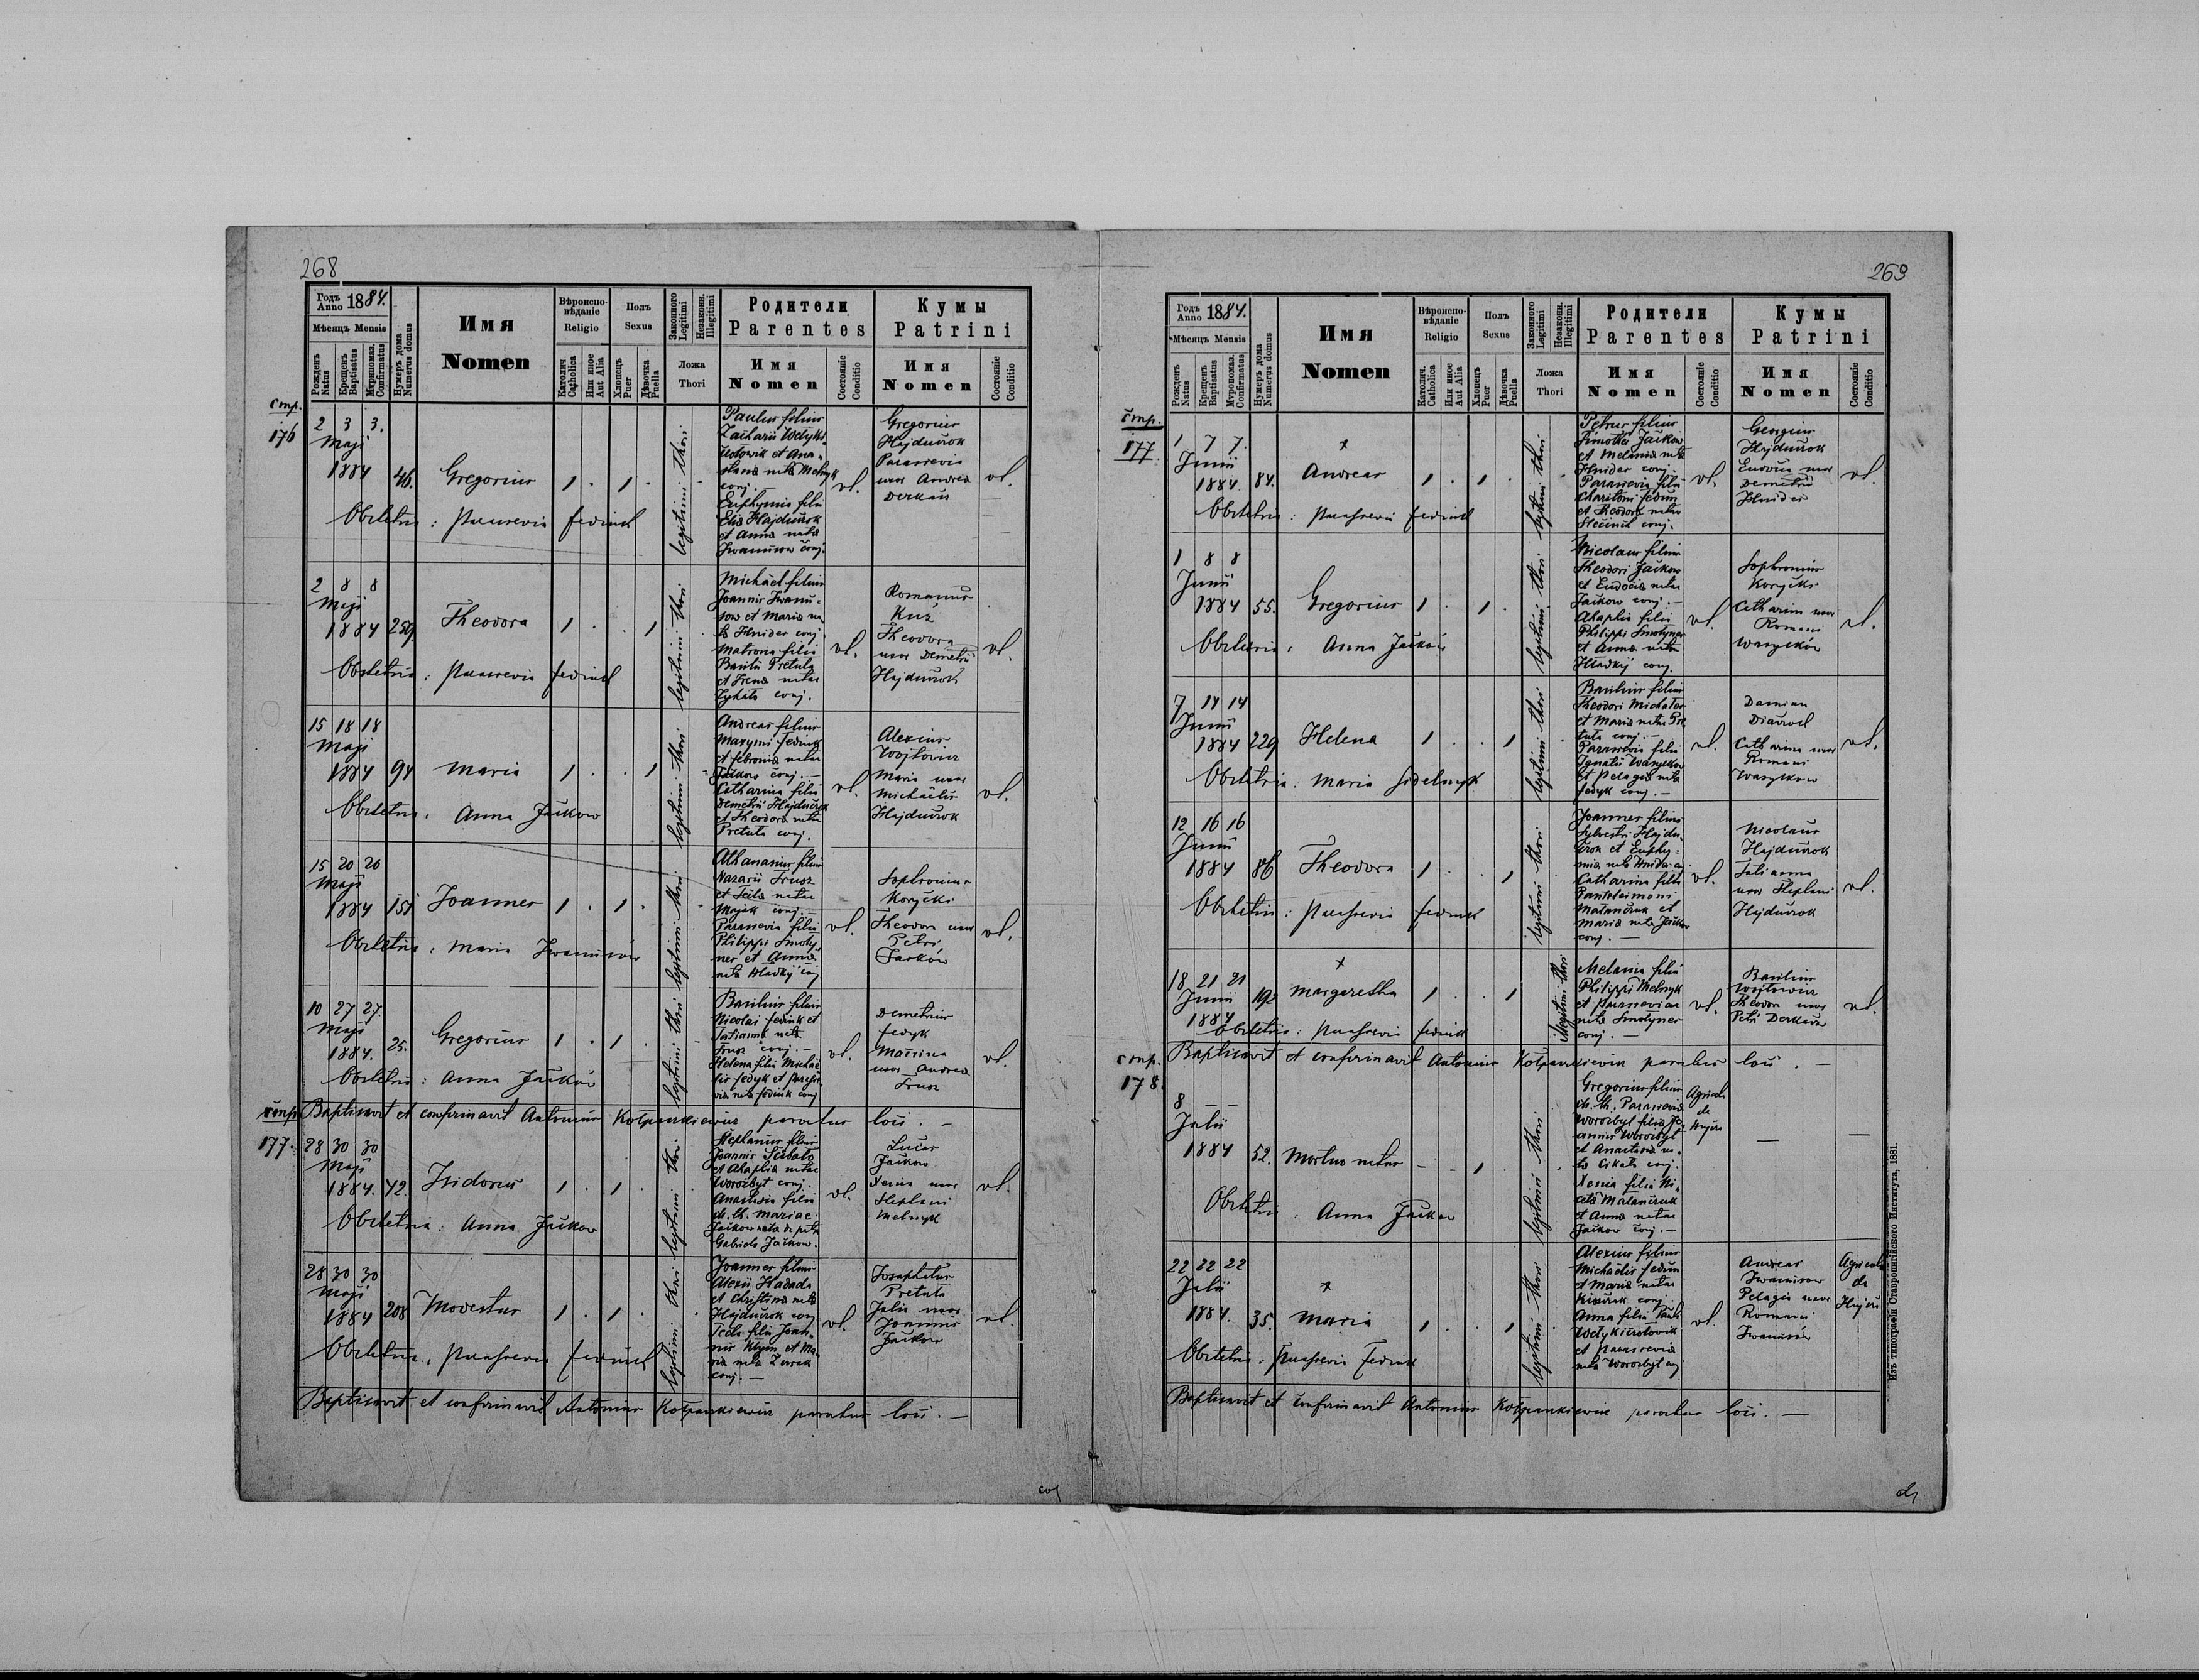 268
Годъ Anno 1884.
Мѣсяцъ Mensis
Рожденъ Natus
Крещенъ Baptisatus
Мѵропомаз. Confirmatus
Нумеръ дома Numerus domus
Имя
Nomen
Вѣроиспо-
вѣданіе
Religio
Католич. Catholica
Или иное Aut Alia
Полъ
Sexus
Хлопецъ Puer
Дѣвочка Puella
Законного Legitimi
Незаконн. Illegitimi
Ложа
Thori
Родители
Parentes
Имя
Nomen
Состояніе Conditio
Кумы
Patrini
Имя
Nomen
Состояніе Conditio
стр.
176
2 3 3.
Maji
1884 46. Gregorius 1 . 1 .
legitimi thori
Paulus filius
Zacharii
et Ana-
stasia nata Melnyk
conj. —
Euphymia filia
Eliæ Hajduczok
et Anna nata
Iwanusow conj.
vl.
Gregorius
Hajduczok
Parascevia
uxor Andreæ
Derkacz
vl.
Obstetrix : Parascevia Fedink
2 8 8
Maji
1884 259 Theodora 1 . . 1
legitimi thori
Michael filius
Joannis Iwanu-
sow et Maria na-
ta Hnider conj.
Matrona filia
Basilii Pretula
et Irena nata
conj.
vl.
Romanus
Kuz
Theodora
uxor Demetrii
Hajduczok
vl.
Obstetrix : Parascevia Fedink
15 18 18
Maji
1884 94 Maria 1 . . 1
legitimi thori
Andreas filius
Maxymi Fedink
et Febronia nata
Jackow conj. —
Catharina filia
Demetrii Hajduczok
et Theodora nata
Pretula conj.
vl.
Alexius
Wojtowicz
Maria uxor
Michaelis
Hajduczok
vl.
Obstetrix : Anna Jackow
15 20 20
Maji
1884 151 Joannes 1 . 1 .
legitimi thori
Athanasius filius
Nazarii Trusz
et Tecla nata
conj. —
Parascevia filia
Philippi Smoly-
ner et Anna
nata Hladkÿ conj.
vl.
Sophronius
Korycki
Theodora uxor
Petri
Jackow
vl.
Obstetrix : Maria Iwanusow
10 27 27.
Maji
1884. 25. Gregorius 1 . 1 .
legitimi thori
Basilius filius
Nicolai Fedink et
Tatianna nata
Trusz conj. —
Helena filia Michae-
lis Fedyk et Parasce-
via nata Fedink conj.
vl.
Demetrius
Fedyk
Matrina
uxor Andreæ
Trusz
vl.
Obstetrix : Anna Jackow
Baptisavit et confirmavit Antonius Kolpankiewicz parochus loci. —
стр.
177.
28 30 30
Maji
1884. 72. Isidorus 1 . 1 .
legitimi thori
Stephanus filius
Joannis
et Ahaphia nata
Worozbyt conj.
Anastasia filia
ill. th. Mariae
Jackow nata de patre
Gabriele Jackow.
vl.
Lucas
Jackow
Xenia uxor
Stephani
Melnyk
vl.
Obstetrix : Anna Jackow
28 30 30
Maji
1884 208 Modestus 1 . 1 .
legitimi thori
Joannes filius
Alexii Hadada
et Christina nata
Hajduczok conj.
Tecla filia Joan-
nis Klym et Ma-
ria nata
conj. —
vl.
Josaphatus
Pretula
Julia uxor
Joannis
Jackow
vl.
Obstetrix : Parascevia Fedink
Baptisavit et confirmavit Antonius Kolpankiewicz parochus loci. —
269
Годъ Anno 1884.
Мѣсяцъ Mensis
Рожденъ Natus
Крещенъ Baptisatus
Мѵропомаз. Confirmatus
Нумеръ дома Numerus domus
Имя
Nomen
Вѣроиспо-
вѣданіе
Religio
Католич. Catholica
Или иное Aut Alia
Полъ
Sexus
Хлопецъ Puer
Дѣвочка Puella
Законного Legitimi
Незаконн. Illegitimi
Ложа
Thori
Родители
Parentes
Имя
Nomen
Состояніе Conditio
Кумы
Patrini
Имя
Nomen
Состояніе Conditio
стр.
177
1 7 7.
Junii
1884. 84. Andreas 1 . 1 .
legitimi thori
Petrus filius
Timothei Jackow
et Melania nata
Hnider conj.
Parascevia filia
Charitoni Fedun
et Theodora nata
conj.
vl.
Georgius
Hajduczok
Eudocia uxor
Demetrii
Hnider
vl.
Obstetrix : Parascevia Fedink
1 8 8
Junii
1884 55. Gregorius 1 . 1 .
legitimi thori
Nicolaus filius
Theodori Jackow
et Eudocia nata
Jackow conj. —
Ahaphia filia
Philippi Smolyner
et Anna nata
Hladkÿ conj.
vl.
Sophronius
Korycki
Catharina uxor
Romani
Wasylkow
vl.
Obstetrix : Anna Jackow
7 14 14
Junii
1884 229 Helena 1 . . 1
legitimi thori
Basilius filius
Theodori
et Maria nata Pre-
tula conj. —
Parascevia filia
Ignatii Wasylkow
et Pelagia nata
Fedyk conj. —
vl.
Damian
Catharina uxor
Romani
Wasylkow
vl.
Obstetrix : Maria Sidelnyk
12 16 16
Junii
1884 86 Theodora 1 . . 1
legitimi thori
Joannes filius
Sylvestri Hajdu-
czok et Euphy-
mia nata
Catharina filia
Panteleimoni
Malanczuk et
Maria nata Jackow
conj. —
vl.
Nicolaus
Hajduczok
Tatianna
uxor Stephani
Hajduczok
vl.
Obstetrix : Parascevia Fedink
18 21 21
Junii
1884 192 Margaretha 1 . . 1
illegitimi thori
Melania filia
Philippi Melnyk
et Parasceviae
nata Smolyner
conj. —
vl.
Basilius
Wojtowicz
Theodora uxor
Petri Derkacz
vl.
Obstetrix : Parascevia Fedink
Baptisavit et confirmavit Antonius Kolpankiewicz parochus loci. —
стр.
178.
8 — —
Julii
1884 52. Mortuo natus — — 1 .
legitimi thori
Gregorius filius
ill. th. Parascevia
Worozbyt filia Jo-
annis Worozbyt
et Anastasia na-
ta conj.
Xenia filia Ni-
cetae Malanczuk
et Anna nata
Jackow conj. —
Agricola
de
—
—
Obstetrix : Anna Jackow
22 22 22
Julii
1884. 35. Maria 1 . . 1
legitimi thori
Alexius filius
Michaelis Fedun
et Maria nata
conj.
Anna filia Pauli
et Parascevia
nata Worozbyt conj.
vl.
Andreas
Iwanusow
Pelagia uxor
Romani
Iwanusow
Agricola
de
Obstetrix : Parascevia Fedink
Baptisavit et confirmavit Antonius Kolpankiewicz parochus loci. —
Изъ типографіи Ставропигійского Института, 1881.